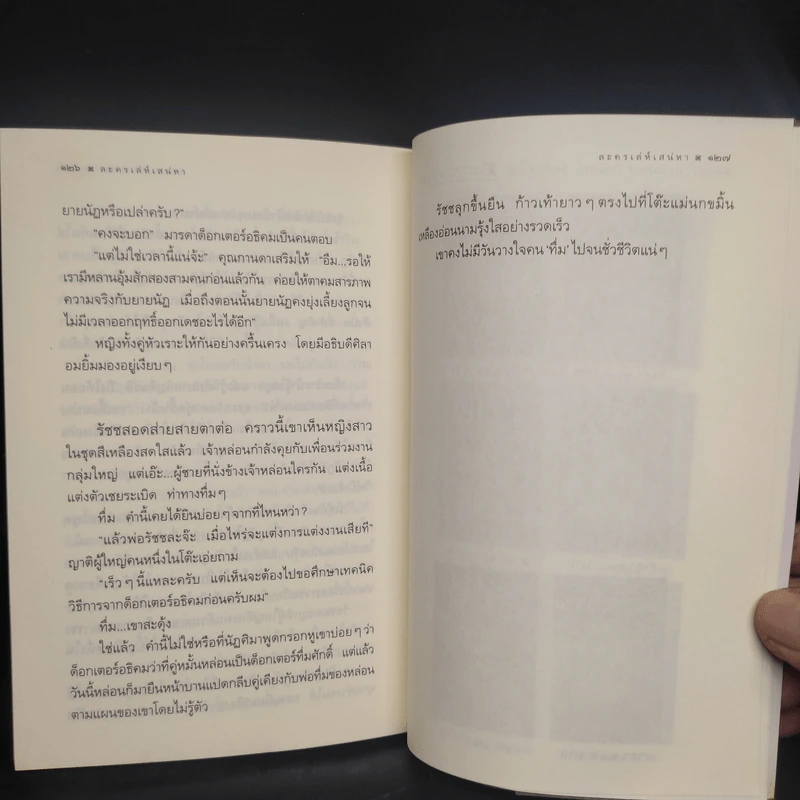 ๑๒๖ ■ ละครเล่ห์เสน่หา
ยายนัฏหรือเปล่าครับ?"
"คงจะบอก" มารดาด็อกเตอร์อธิคมเป็นคนตอบ
"แต่ไม่ใช่เวลานี้แน่จ้ะ" คุณกานดาเสริมให้ "อืม...รอให้
เรามีหลานอุ้มสักสองสามคนก่อนแล้วกัน ค่อยให้ตาคมสารภาพ
ความจริงกับยายนัฏ เมื่อถึงตอนนั้นยายนัฏคงยุ่งเลี้ยงลูกจน
ไม่มีเวลาออกฤทธิ์ออกเดชอะไรได้อีก"
หญิงทั้งคู่หัวเราะให้กันอย่างครื้นเครง โดยมีอธิบดีศิลา
อมยิ้มมองอยู่เงียบๆ
รัชชสอดส่ายสายตาต่อ คราวนี้เขาเห็นหญิงสาว
ในชุดสีเหลืองสดใสแล้ว เจ้าหล่อนกำลังคุยกับเพื่อนร่วมงาน
กลุ่มใหญ่ แต่เอ๊ะ...ผู้ชายที่นั่งข้างเจ้าหล่อนใครกัน แต่งเนื้อ
แต่งตัวเชยระเบิด ท่าทางทึ่มๆ
ทึ่ม คำนี้เคยได้ยินบ่อยๆจากที่ไหนหว่า?
"แล้วพ่อรัชชละจ๊ะ เมื่อไหร่จะแต่งการแต่งงานเสียที"
ญาติผู้ใหญ่คนหนึ่งในโต๊ะเอ่ยถาม
"เร็วๆนี้แหละครับ แต่เห็นจะต้องไปขอศึกษาเทคนิค
วิธีการจากด็อกเตอร์อธิคมก่อนครับผม"
ทึ่ม...เขาสะดุ้ง
ใช่แล้ว คำนี้ไม่ใช่หรือที่นัฏคิมาพูดกรอกหูเขาบ่อยๆว่า
ด็อกเตอร์อธิคมว่าที่คู่หมั้นหล่อนเป็นด็อกเตอร์ทึ่มศักดิ์ แต่แล้ว
วันนี้หล่อนก็มายืนหน้าบานแปดกลีบคู่เคียงกับพ่อทึ่มของหล่อน
ตามแผนของเขาโดยไม่รู้ตัว
ละครเล่ห์เสน่หา ■ ๑๒๗
รัชชลุกขึ้นยืน ก้าวเท้ายาวๆตรงไปที่โต๊ะแม่นกขมิ้น
เหลืองอ่อนนามรุ้งใสอย่างรวดเร็ว
เขาคงไม่มีวันวางใจคน 'ทึ่ม' ไปจนชั่วชีวิตแน่ๆ